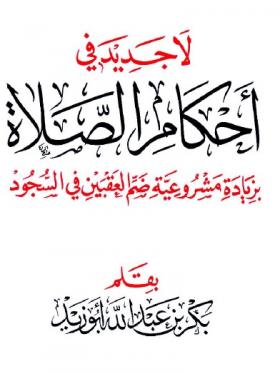 لا جديد في
أحكام الصلاة
بزيادة مشروعية ضم العقبين في السجود
بقلم
بكر بن عبد الله أبو زيد